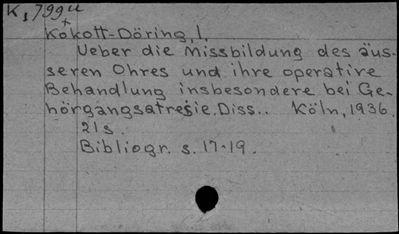 K, 799u
Kokott-Döring, I.
Ueber die Missbildung des äus-
seren Ohres und ihre operative
Behandlung insbesondere bei Ge-
hörgangsatresie. Diss.. Köln, 1936.
21s.
Bibliogr. s. 17-19.